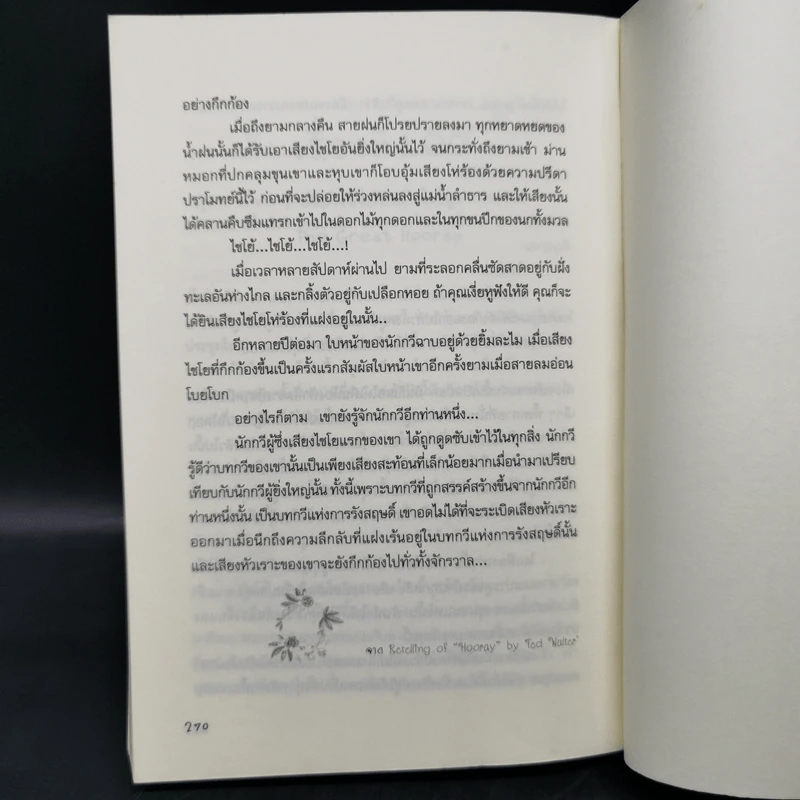 อย่างกึกก้อง
เมื่อถึงยามกลางคืน สายฝนก็โปรยปรายลงมา ทุกหยาดหยดของ
น้ำฝนนั้นก็ได้รับเอาเสียงไชโยอันยิ่งใหญ่นั้นไว้ จนกระทั่งถึงยามเช้า ม่าน
หมอกที่ปกคลุมขุนเขาและหุบเขาก็โอบอุ้มเสียงโห่ร้องด้วยความปรีดา
ปราโมทย์นี้ไว้ ก่อนที่จะปล่อยให้ร่วงหล่นลงสู่แม่น้ำลำธาร และให้เสียงนั้น
ได้คลานคืบซึมแทรกเข้าไปในดอกไม้ทุกดอกและในทุกขนปีกของนกทั้งมวล
ไชโย้...ไชโย้...ไชโย้...!
เมื่อเวลาหลายสัปดาห์ผ่านไป ยามที่ระลอกคลื่นซัดสาดอยู่กับฝั่ง
ทะเลอันห่างไกล และกลิ้งตัวอยู่กับเปลือกหอย ถ้าคุณเงี่ยหูฟังให้ดี คุณก็จะ
ได้ยินเสียงไชโยโห่ร้องที่แฝงอยู่ในนั้น..
อีกหลายปีต่อมา ใบหน้าของนักกวีฉาบอยู่ด้วยยิ้มละไม เมื่อเสียง
ไชโยที่กึกก้องขึ้นเป็นครั้งแรกสัมผัสใบหน้าเขาอีกครั้งยามเมื่อสายลมอ่อน
โบยโบก
อย่างไรก็ตาม เขายังรู้จักนักกวีอีกท่านหนึ่ง...
นักกวีผู้ซึ่งเสียงไชโยแรกของเขา ได้ถูกดูดซับเข้าไว้ในทุกสิ่ง นักกวี
รู้ดีว่าบทกวีของเขานั้นเป็นเพียงเสียงสะท้อนที่เล็กน้อยมากเมื่อนำมาเปรียบ
เทียบกับนักกวีผู้ยิ่งใหญ่นั้น ทั้งนี้เพราะบทกวีที่ถูกสรรค์สร้างขึ้นจากนักกวีอีก
ท่านหนึ่งนั้น เป็นบทกวีแห่งการรังสฤษดิ์ เขาอดไม่ได้ที่จะระเบิดเสียงหัวเราะ
ออกมาเมื่อนึกถึงความลึกลับที่แฝงเร้นอยู่ในบทกวีแห่งการรังสฤษดิ์นั้น
และเสียงหัวเราะของเขาจะยังกึกก้องไปทั่วทั้งจักรวาล...
จาก Retelling of "Hooray" by Ted Walter
270